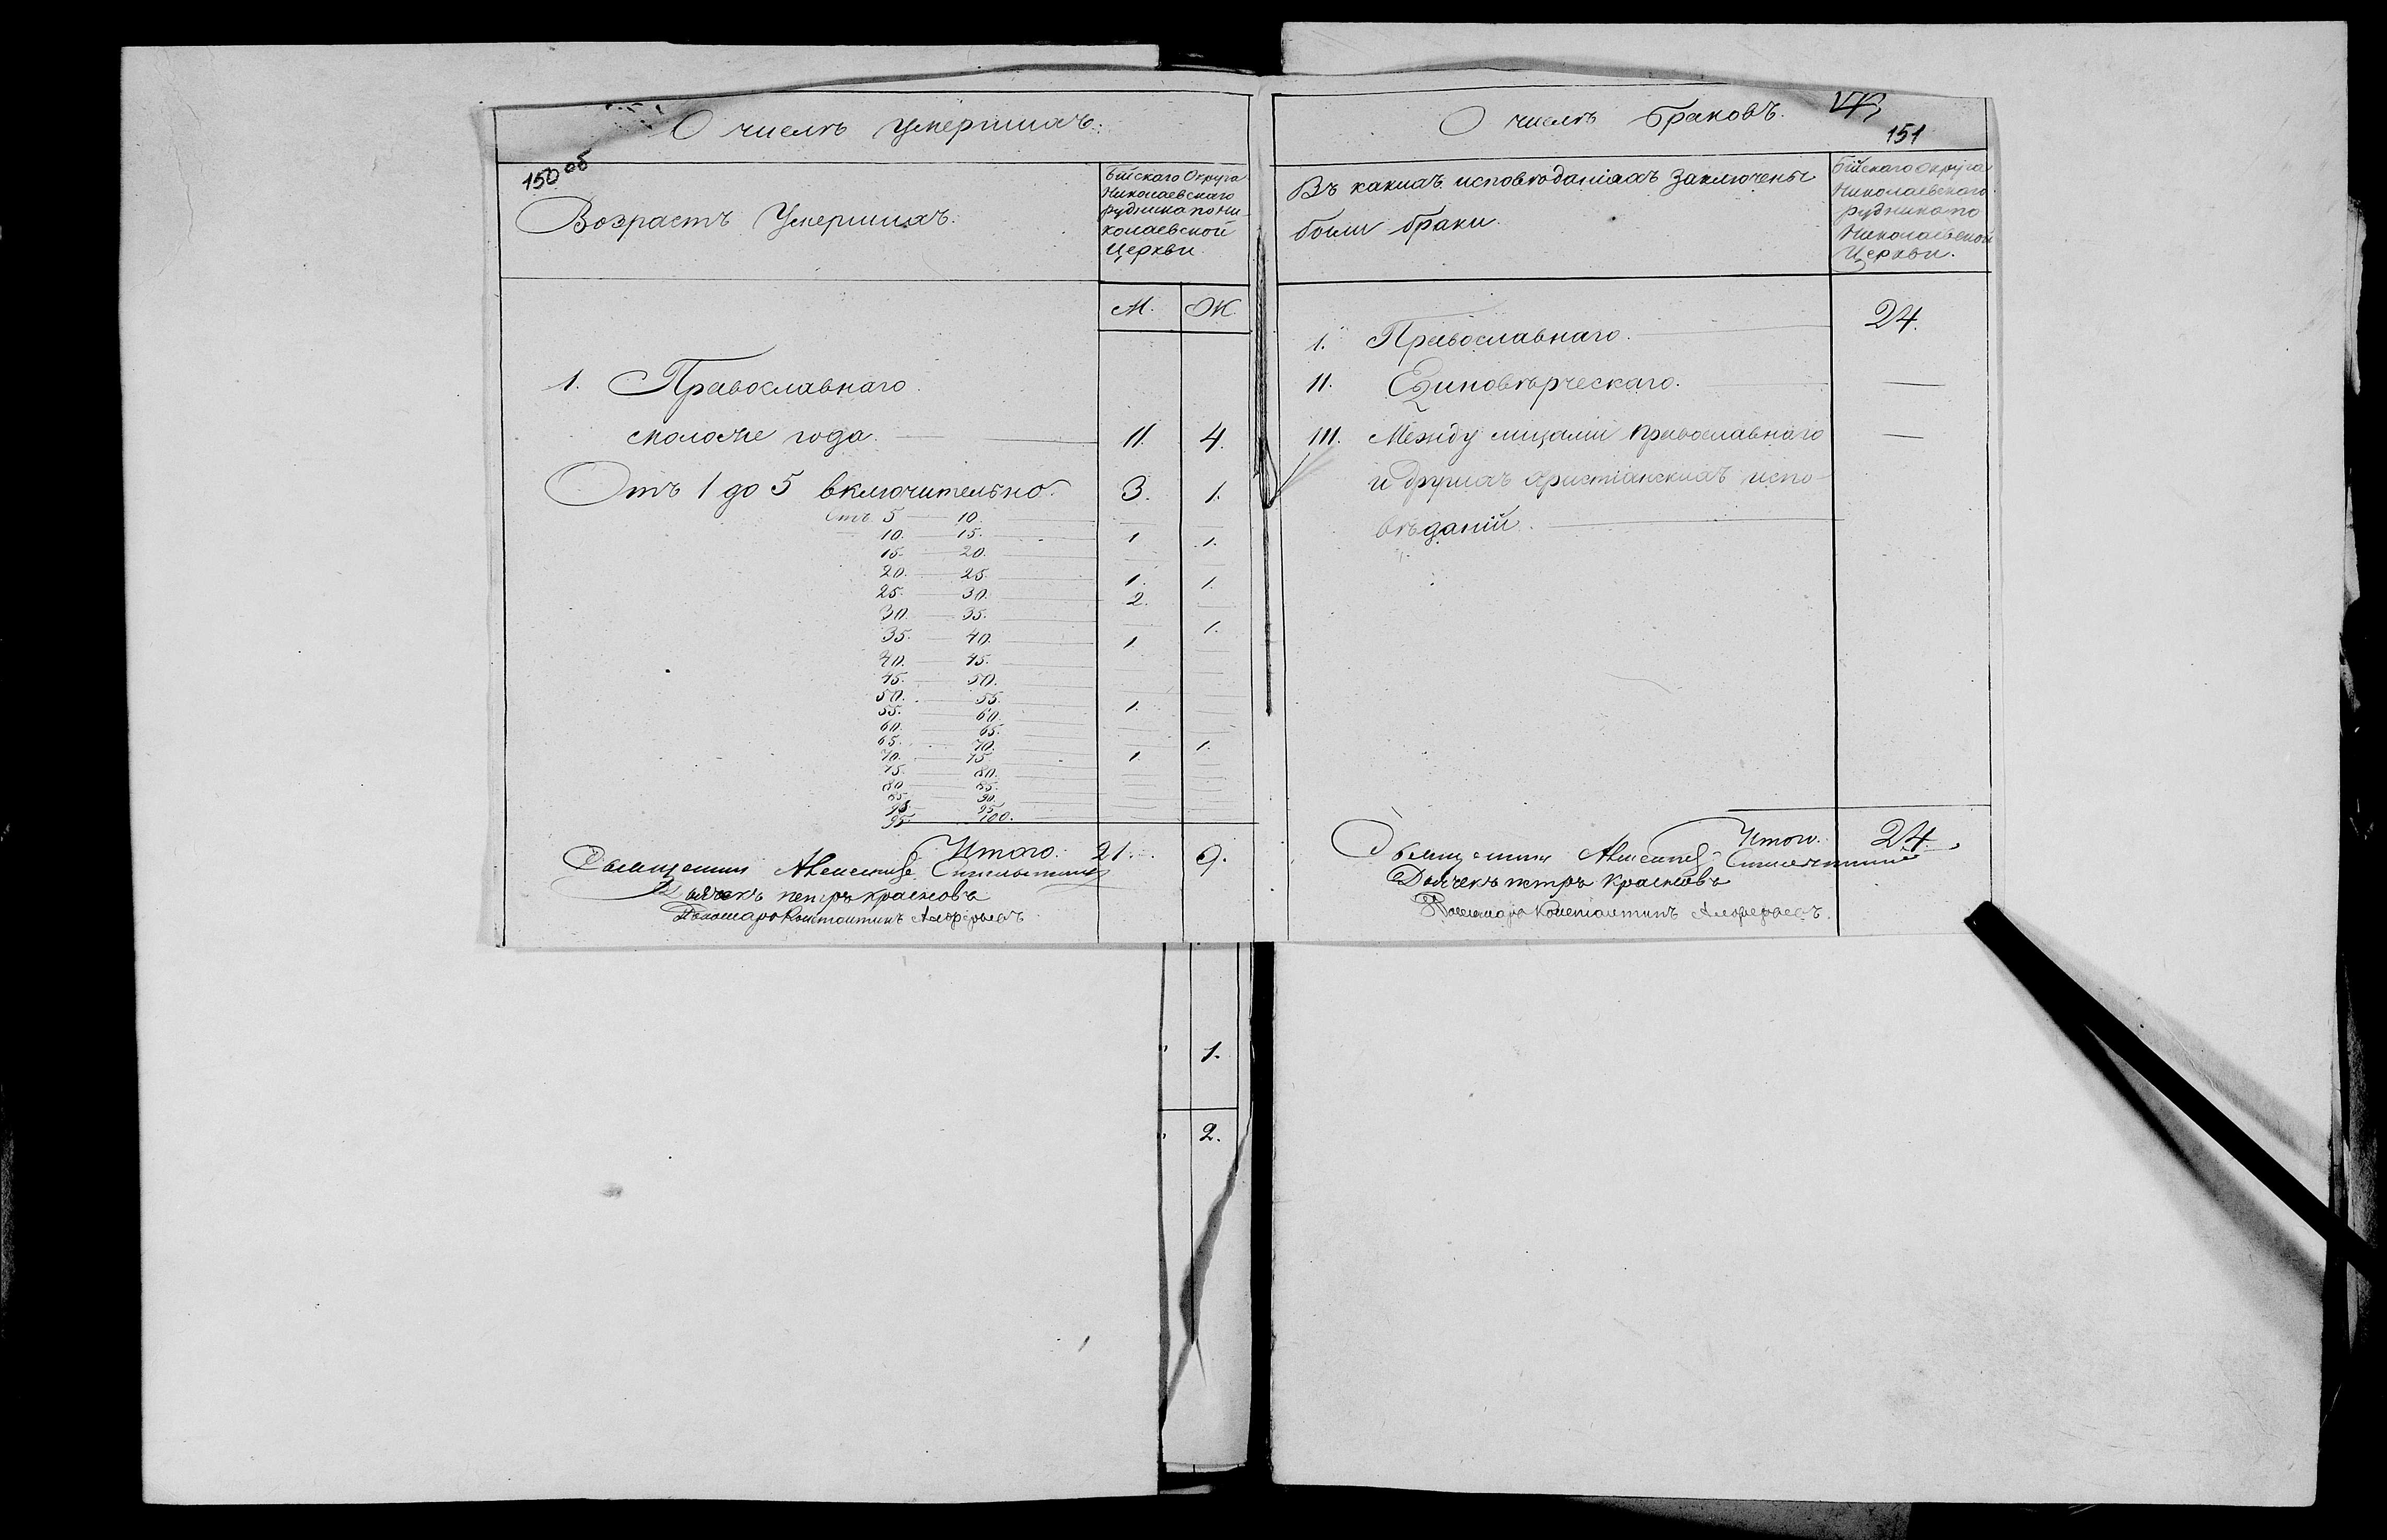 О числѣ умершихъ.
150 об
Возрастъ Умершихъ.
Бійскаго Округа
Николаевскаго
рудника по Ни-
колаевской
Церкви.
М. Ж.
1. Православнаго
моложе года. 11. 4.
Отъ 1 до 5 включительно. 3. 1.
Отъ 5 — 10. — —
10. — 15. 1 1.
15. — 20. — —
20. — 25. 1. 1.
25. — 30. 2. —
30. — 35. — 1.
35. — 40. 1 —
40. — 45. — —
45. — 50. — —
50. — 55. — —
55. — 60. 1. —
60. — 65. — —
65. — 70. — 1.
70. — 75 1. —
75. — 80. — —
80 — 85. — —
85. — 90. — —
90. — 95 — —
95 — 100. — —
Итого. 21. 9.
Священникъ
Дьячекъ Петръ Красновъ
Пономарь Константинъ
О числѣ браковъ.
151
Въ какихъ исповѣданіяхъ заключены
были браки.
Бійскаго округа
Николаевскаго
рудника по
Николаевской
Церкви.
1. Православнаго. 24.
11. Единовѣрческаго. —
111. Между лицами православнаго —
и другихъ христіанскихъ испо-
вѣданій.
Итого. 24.
Священникъ
Дьячекъ петръ Красновъ
Пономарь Константинъ
1.
2.